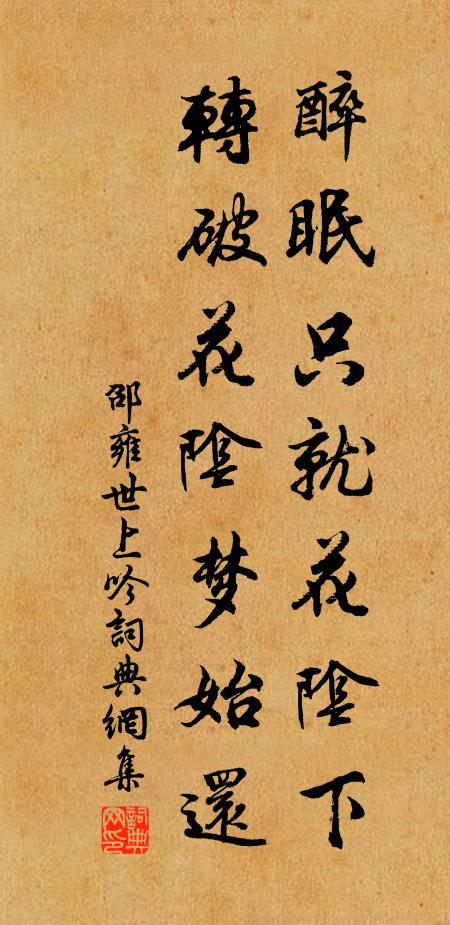 醉眠只就花陰下
轉破花陰梦始還
邵雍世上吟詞典網集
詞典网印